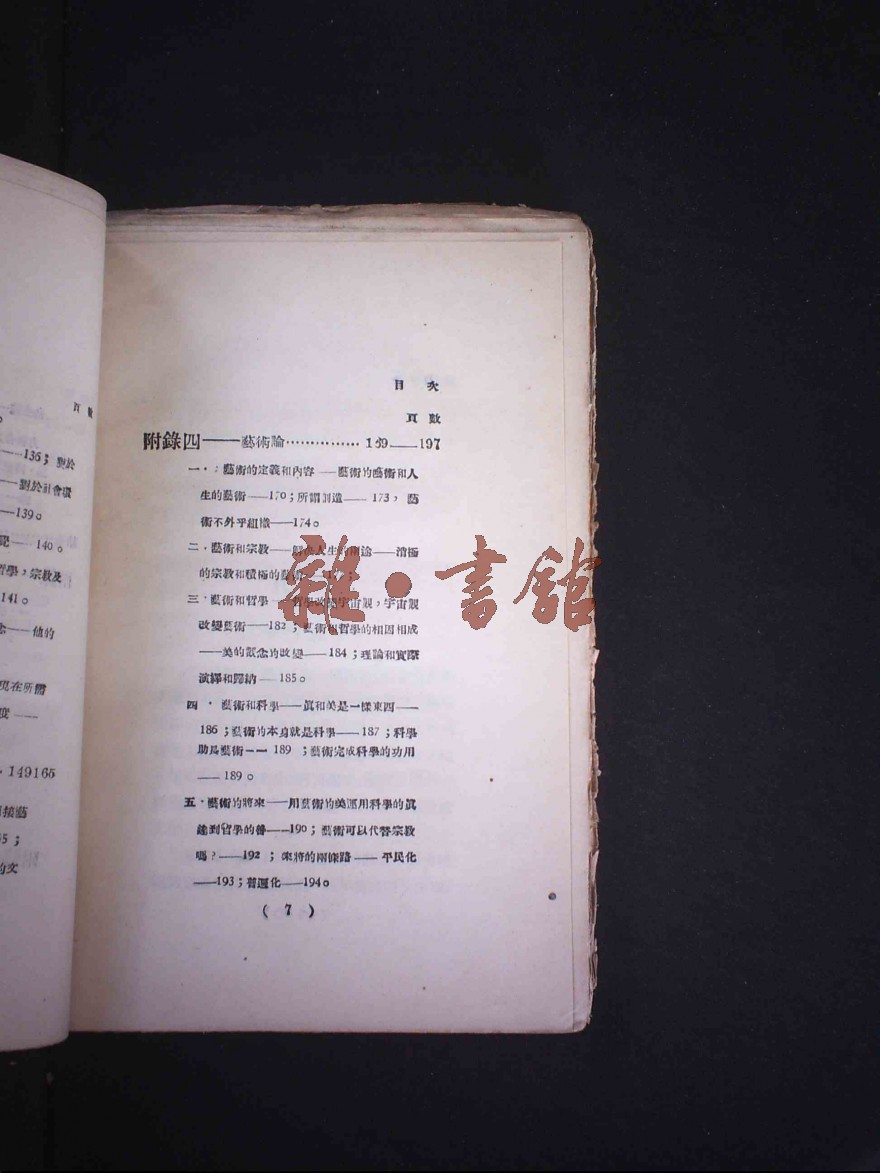 頁數
——136；對於
——對於社會環
——139。
——140。
哲學，宗教及
141。
念——他的
現在所謂
度——
149165
接藝
5；
的文
目次
頁數
附錄四——藝術論……………169——197
一．：藝術的定義和內容——藝術的藝術和人
生的藝術——170；所謂創造——173，藝
術不外乎組織——174。
二．藝術和宗教——解決人生的兩途——消極
的宗教和積極的藝術
三．藝術和哲學——哲學改變宇宙觀，宇宙觀
改變藝術——182；藝術和哲學的相因相成
——美的觀念的改變——184；理論和實際
演繹和歸納——185。
四．藝術和科學——眞和美是一樣東西——
186；藝術的本身就是科學——187；科學
助長藝術——189；藝術完成科學的功用
——189。
五．藝術的將來——用藝術的美運用科學的眞
達到哲學的善——190；藝術可以代替宗教
嗎？——192；來將的兩條路——平民化
——193；普遍化——194。
(7)
雜·書館